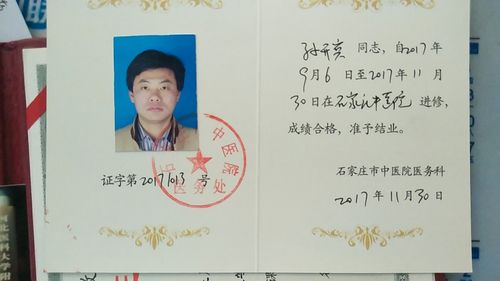 同志，自2017年
9月6日至2017年11月
30日在石家庄中医院进修，
成绩合格，准予结业。
石家庄市中医院医务科
2017年11月30日
证字第2017013号
中医院
医务处
河北医科大学附